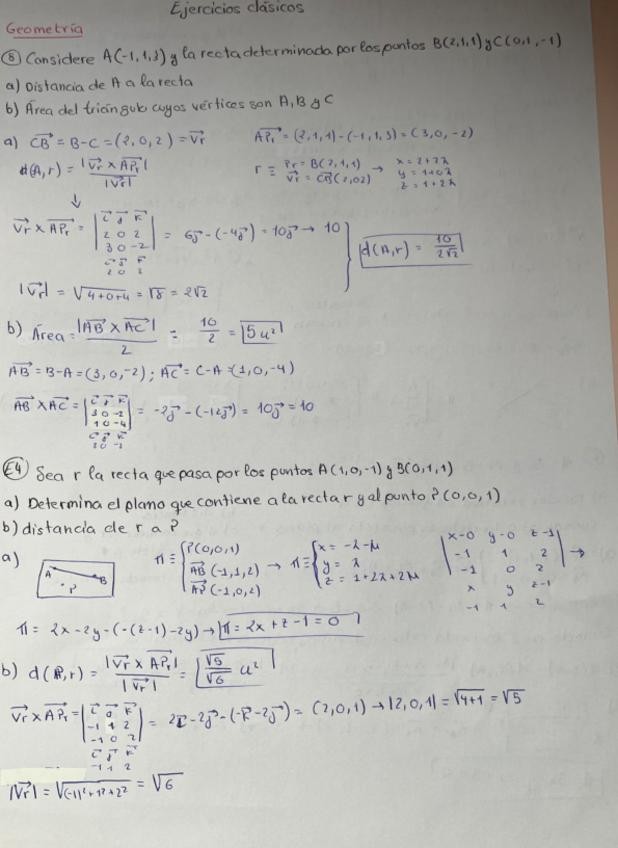 Ejercicios clásicos
Geometría
⑧ Considere A(-1,1,3) y la recta determinada por los puntos B(2,1,1) y C(0,1,-1)
a) Distancia de A a la recta
b) Área del triángulo cuyos vértices son A, B y C
a) CB→ = B-C = (2,0,2) = Vr→    APr→ = (2,1,1) - (-1,1,3) = (3,0,-2)
d(A,r) = |Vr→ × APr→| / |Vr→|    r ≡ Pr = B(2,1,1) Vr→ = CB→(2,02) → x = 2+2λ y = 1+0λ z = 1+2λ
↓
Vr→ × APr→ = | i→ j→ k→ | 2 0 2 | 3 0 -2 | i→ j→ k→ 2 0 2 = 6j→ - (-4j→) = 10j→ → 10    } d(A,r) = 10/2√2
|Vr→| = √4+0+4 = √8 = 2√2
b) Área = |AB→ × AC→| / 2 = 10/2 = 5 u²
AB→ = B-A = (3,0,-2) ; AC→ = C-A = (1,0,-4)
AB→ × AC→ = | i→ j→ k→ | 3 0 -2 | 1 0 -4 | i→ j→ k→ 3 0 -2 = -2j→ - (-12j→) = 10j→ = 10
E4 Sea r la recta que pasa por los puntos A(1,0,-1) y B(0,1,1)
a) Determina el plano que contiene a la recta r y al punto P(0,0,1)
b) distancia de r a P
a) A B P    π ≡ { P(0,0,1) AB→(-1,1,2) AP→(-1,0,2) → π ≡ { x = -λ-μ y = λ z = 1+2λ+2μ    | x-0 y-0 z-1 | -1 1 2 | -1 0 2 | x y z-1 -1 1 2 →
π = 2x - 2y - (-(z-1) - 2y) → π = 2x + z - 1 = 0
b) d(P,r) = |Vr→ × APr→| / |Vr→| = √5/√6 u²
Vr→ × APr→ = | i→ j→ k→ | -1 1 2 | -1 0 2 | i→ j→ k→ -1 1 2 = 2i→ - 2j→ - (-k→ - 2j→) = (2,0,1) → |2,0,1| = √4+1 = √5
|Vr→| = √(-1)²+1²+2² = √6